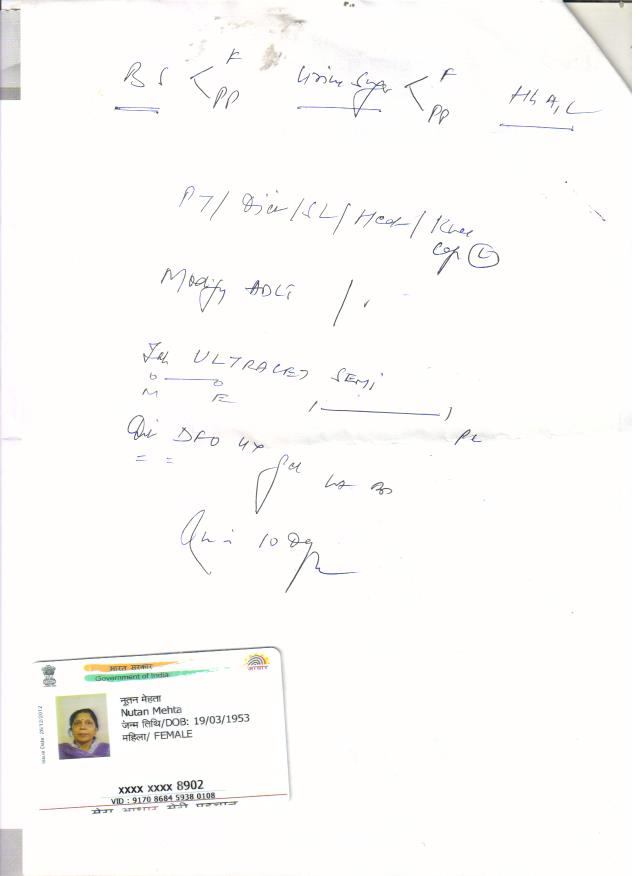 BS < F PP Urine Sugar < F PP Hb A1C
PT / Diet / SL / / Knee
Cap (L)
Modify ADLs /
Tab ULTRACET SEMI
M E
DFO 4x Gel
10 Days
भारत सरकार
Government of India
आधार
Issue Date: 26/12/2012
नूतन मेहता
Nutan Mehta
जन्म तिथि/DOB: 19/03/1953
महिला/ FEMALE
XXXX XXXX 8902
VID : 9170 8684 5938 0108
मेरा आधार मेरी पहचान